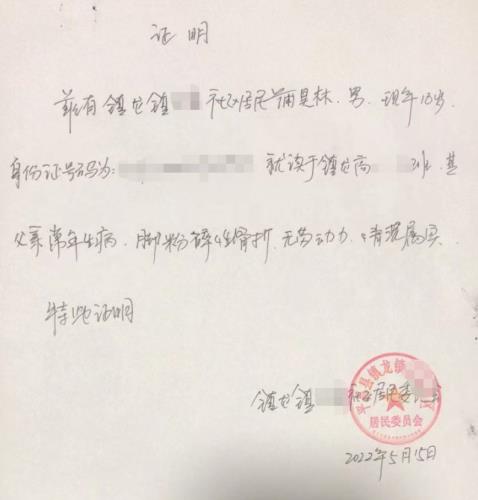 证明
兹有镇龙镇 社区居民蒲昊林.男.现年18岁.
身份证号码为: 就读于镇龙高 班.其
父亲常年生病.脚粉碎性骨折.无劳动力.情况属实.
特此证明
镇龙镇 社区居委会
平昌县镇龙镇
居民委员会
2022年5月15日